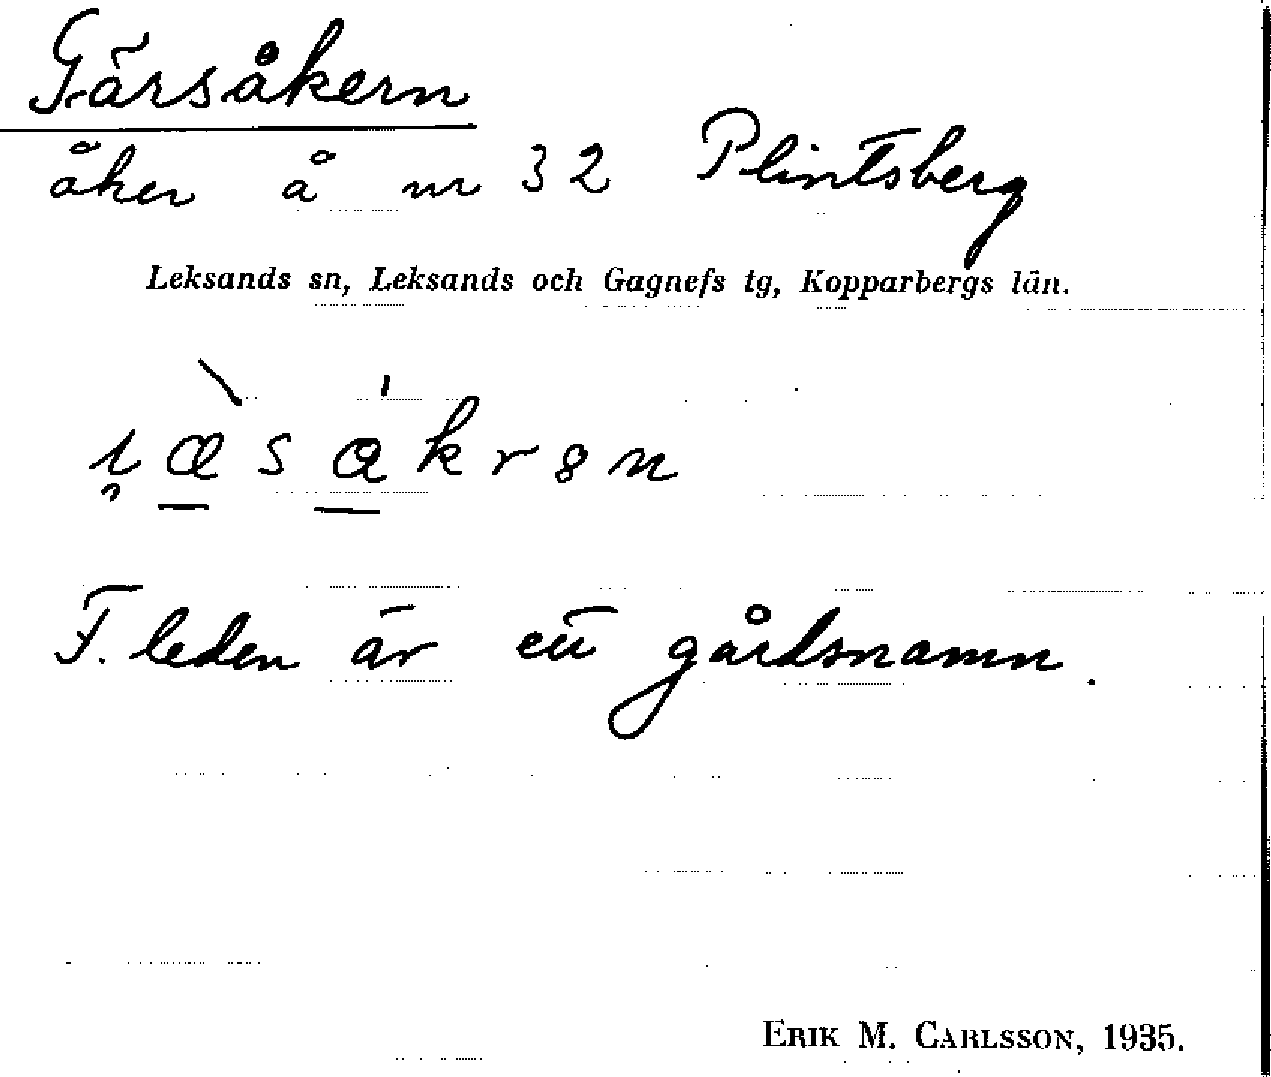 Gärsåkern
åker å nr 32 Plintsberg
Leksands sn, Leksands och Gagnefs tg, Kopparbergs län.
F. leden är ett gårdsnamn.
ERIK M. CARLSSON, 1935.